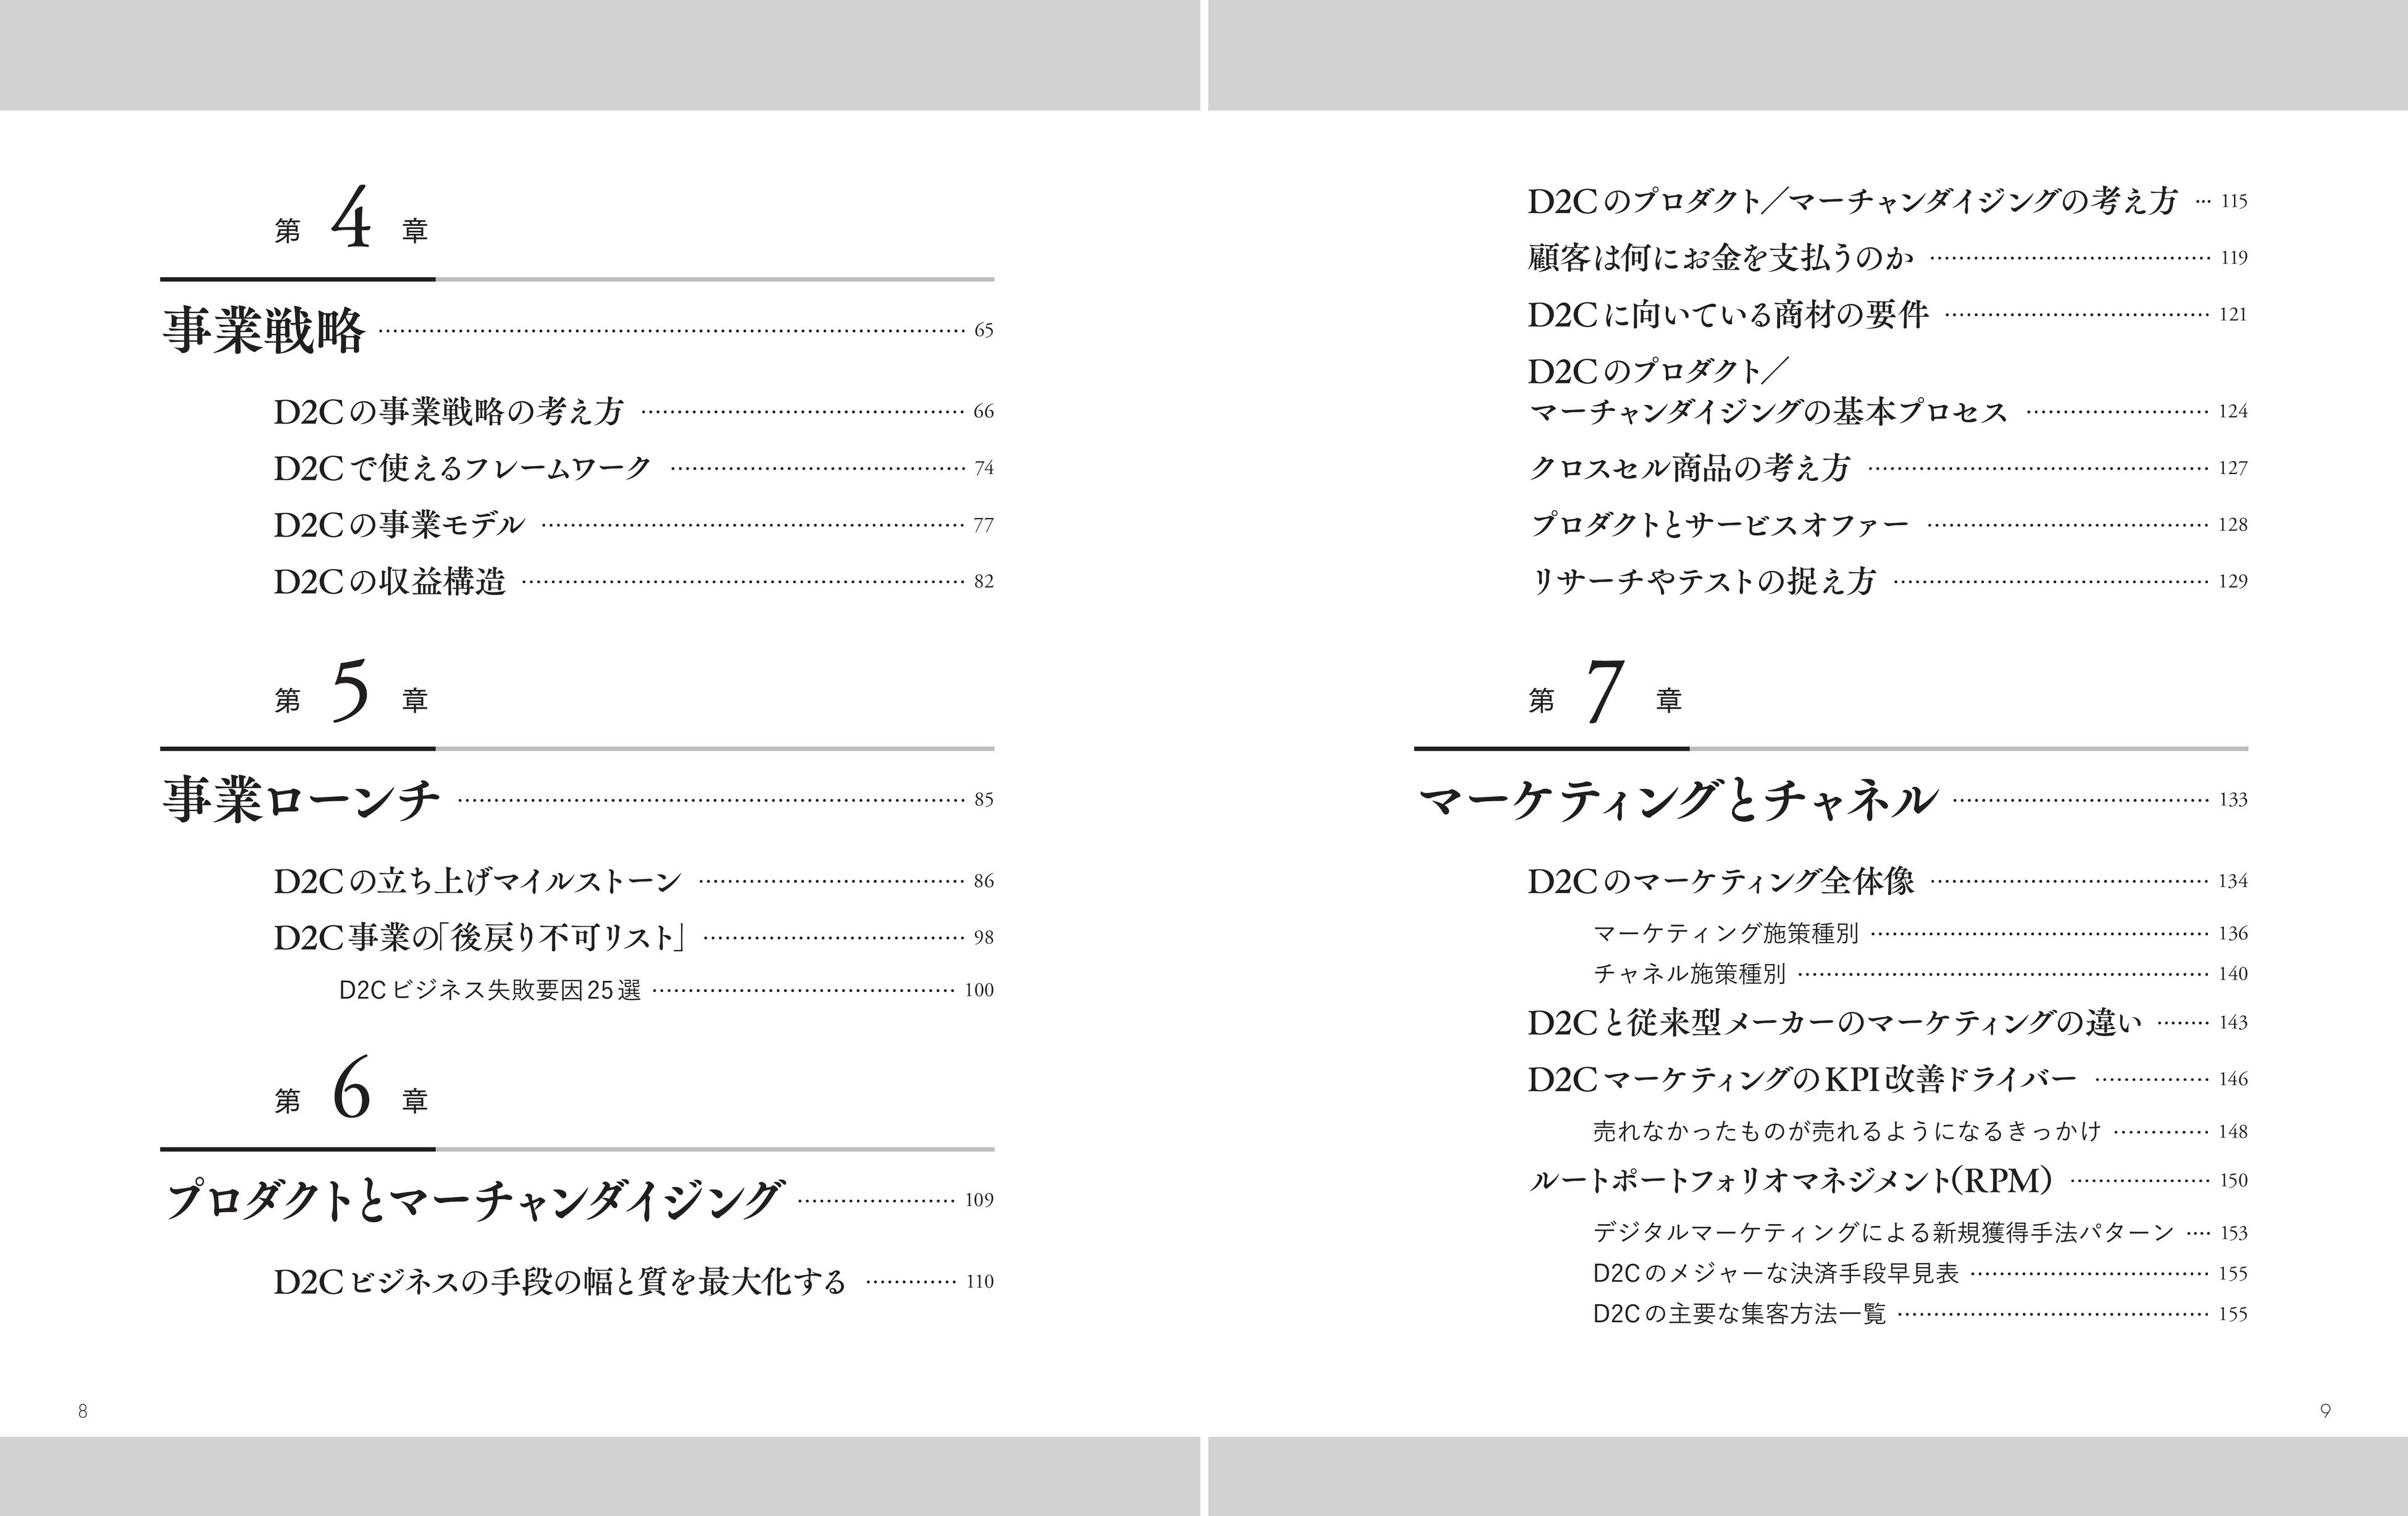 第 4 章
事業戦略 65
D2Cの事業戦略の考え方 66
D2Cで使えるフレームワーク 74
D2Cの事業モデル 77
D2Cの収益構造 82
第 5 章
事業ローンチ 85
D2Cの立ち上げマイルストーン 86
D2C事業の「後戻り不可リスト」 98
D2Cビジネス失敗要因25選 100
第 6 章
プロダクトとマーチャンダイジング 109
D2Cビジネスの手段の幅と質を最大化する 110
8
D2Cのプロダクト／マーチャンダイジングの考え方 115
顧客は何にお金を支払うのか 119
D2Cに向いている商材の要件 121
D2Cのプロダクト／
マーチャンダイジングの基本プロセス 124
クロスセル商品の考え方 127
プロダクトとサービスオファー 128
リサーチやテストの捉え方 129
第 7 章
マーケティングとチャネル 133
D2Cのマーケティング全体像 134
マーケティング施策種別 136
チャネル施策種別 140
D2Cと従来型メーカーのマーケティングの違い 143
D2CマーケティングのKPI改善ドライバー 146
売れなかったものが売れるようになるきっかけ 148
ルートポートフォリオマネジメント（RPM） 150
デジタルマーケティングによる新規獲得手法パターン 153
D2Cのメジャーな決済手段早見表 155
D2Cの主要な集客方法一覧 155
9